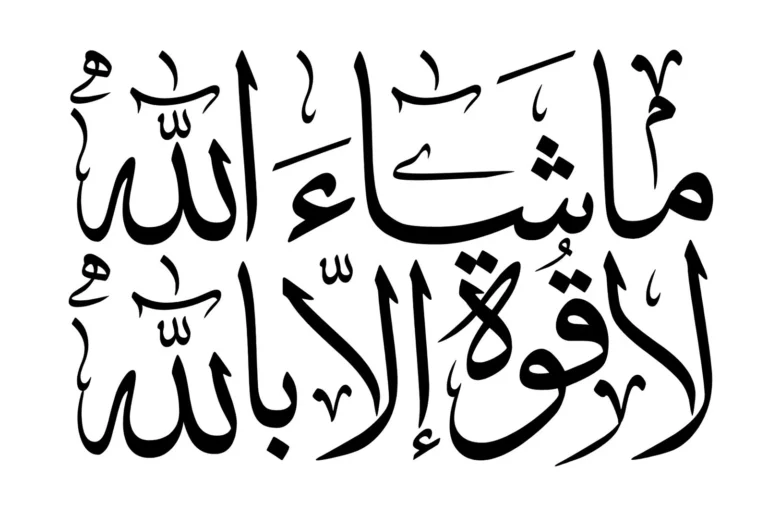 ما شَاءَ اللّٰهُ
لا قُوة إلّا باللّٰهُ